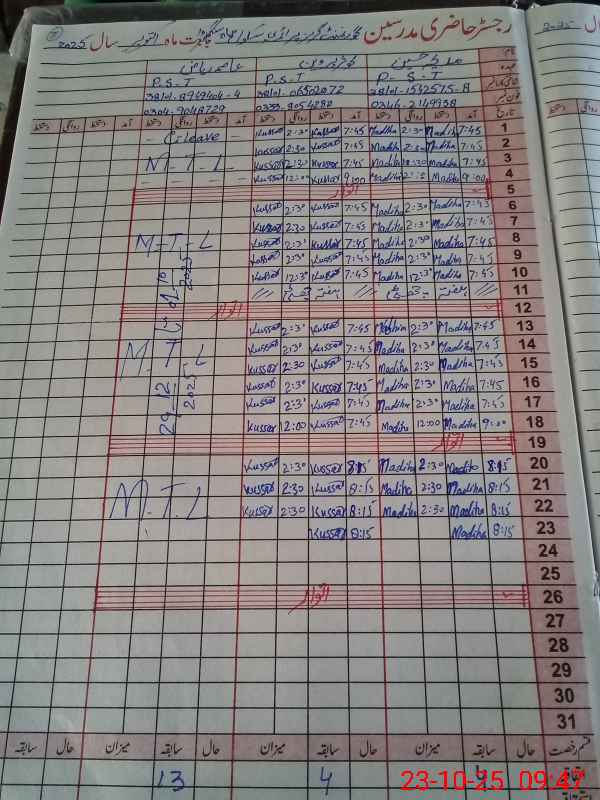 رجسٹر حاضری مدرسین گورنمنٹ گرلز پرائمری سکول بابت ماہ اکتوبر سال 2025
نام
عہدہ P-S-T P.S.T P.S.T
38101-1542575-8 38101-06502072
فون نمبر 0346-2149938 0333-9054280 0304-9048729
تاریخ آمد دستخط روانگی دستخط آمد دستخط روانگی دستخط آمد دستخط روانگی دستخط
1 7:45 Madiha 2:30 Madiha 7:45 Kussar 2:30 Kussar C.leave
2 7:45 Madiha 2:30 Madiha 7:45 Kussar 2:30 Kussar
3 7:45 Madiha 2:30 Madiha 7:45 Kussar 2:30 Kussar M.T.L
4 9:00 Madiha Madiha 9:00 Kussar 12:00 Kussar
5 اتوار
6 7:45 Madiha 2:30 Madiha 7:45 Kussar 2:30 Kussar
7 7:45 Madiha 2:30 Madiha 7:45 Kussar 2:30 Kussar
8 7:45 Madiha 2:30 Madiha 7:45 Kussar 2:30 Kussar M-T-L
9 7:45 Madiha 2:30 Madiha 7:45 Kussar 2:30 Kussar
10 7:45 Madiha 12:30 Madiha 7:45 Kussar 12:30 Kussar
11 // ہفتہ چھٹی // // ہفتہ چھٹی //
12 اتوار
13 7:45 Madiha 2:30 Madiha 7:45 Kussar 2:30 Kussar
14 7:45 Madiha 2:30 Madiha 7:45 Kussar 2:30 Kussar M.T.L
15 7:45 Madiha 2:30 Madiha 7:45 Kussar 2:30 Kussar
16 7:45 Madiha 2:30 Madiha 7:45 Kussar 2:30 Kussar
17 7:45 Madiha 2:30 Madiha 7:45 Kussar 2:30 Kussar
18 9:00 Madiha 12:00 Madiha 7:45 Kussar 12:00 Kussar
19 اتوار
20 8:15 Madiha 2:30 Madiha 8:15 Kussar 2:30 Kussar
21 8:15 Madiha 2:30 Madiha 8:15 Kussar 2:30 Kussar
22 8:15 Madiha 2:30 Madiha 8:15 Kussar 2:30 Kussar M.T.L
23 8:15 Madiha 8:15 Kussar
24
25
26 اتوار
27
28
29
30
31
قسم رخصت حال سابقہ میزان حال سابقہ میزان حال سابقہ میزان حال سابقہ
4 13
23-10-25 09:47